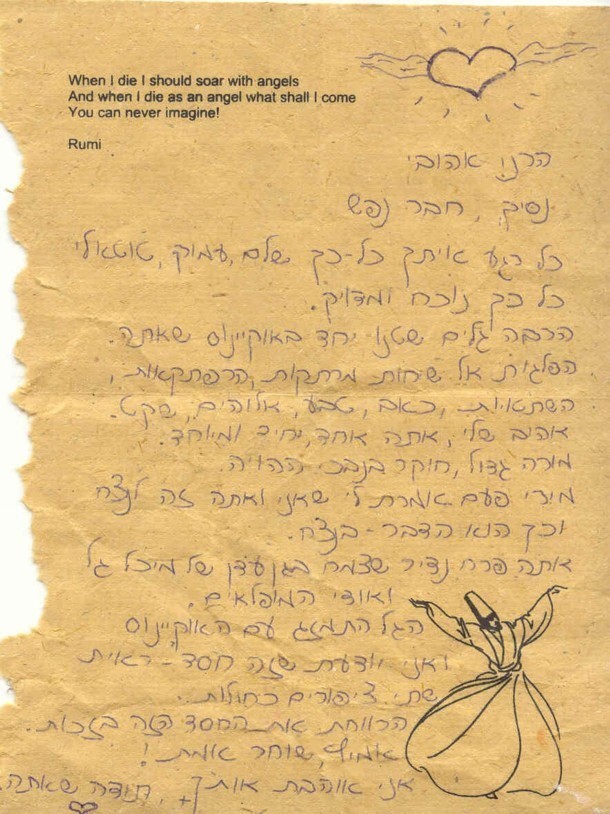 When I die I should soar with angels
And when I die as an angel what shall I come
You can never imagine!
Rumi
הרני אהובי
נסיך, חבר נפש
כל רגע איתך כל-כך שלם, עמוק, טוטאלי
כל כך נוכח ומדויק.
הרבה גלים שטנו יחד באוקיינוס שאתה.
הפלגות אל שיחות מרתקות, הרפתקאות,
השתאויות, כאב, טבע, אלוהים, שקט.
אהוב שלי, אתה אחד, יחיד ומיוחד.
מורה גדול, חוקר בנבכי ההויה.
מירי פעם אומרת לי שאני ואתה זה לנצח
וכך הוא הדבר - בנצח.
אתה פרח נדיר שצמח בגן עדן של מיכל גל
ואודי המופלאים.
הגל התמזג עם האוקיינוס
ואני יודעת שזה חסד - ראית
שתי ציפורים כחולות.
הרווחת את החסד הזה בזכות.
אמיץ, שוחר אמת!
אני אוהבת אותך, תודה שאתה.